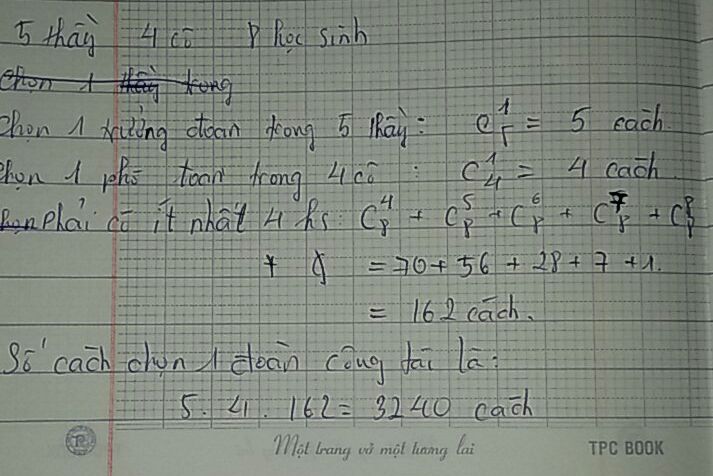 5 thầy 4 cô 8 học sinh
Chọn 1 thầy trong
Chọn 1 trưởng đoàn trong 5 thầy: C¹₅ = 5 cách.
Chọn 1 phó toàn trong 4 cô : C¹₄ = 4 cách
Phải có ít nhất 4 hs: C⁴₈ + C⁵₈ + C⁶₈ + C⁷₈ + C⁸₈
= 70 + 56 + 28 + 7 + 1.
= 162 cách.
Số cách chọn 1 đoàn công tái là:
5. 4. 162 = 3240 cách
Một trang vở một tương lai TPC BOOK